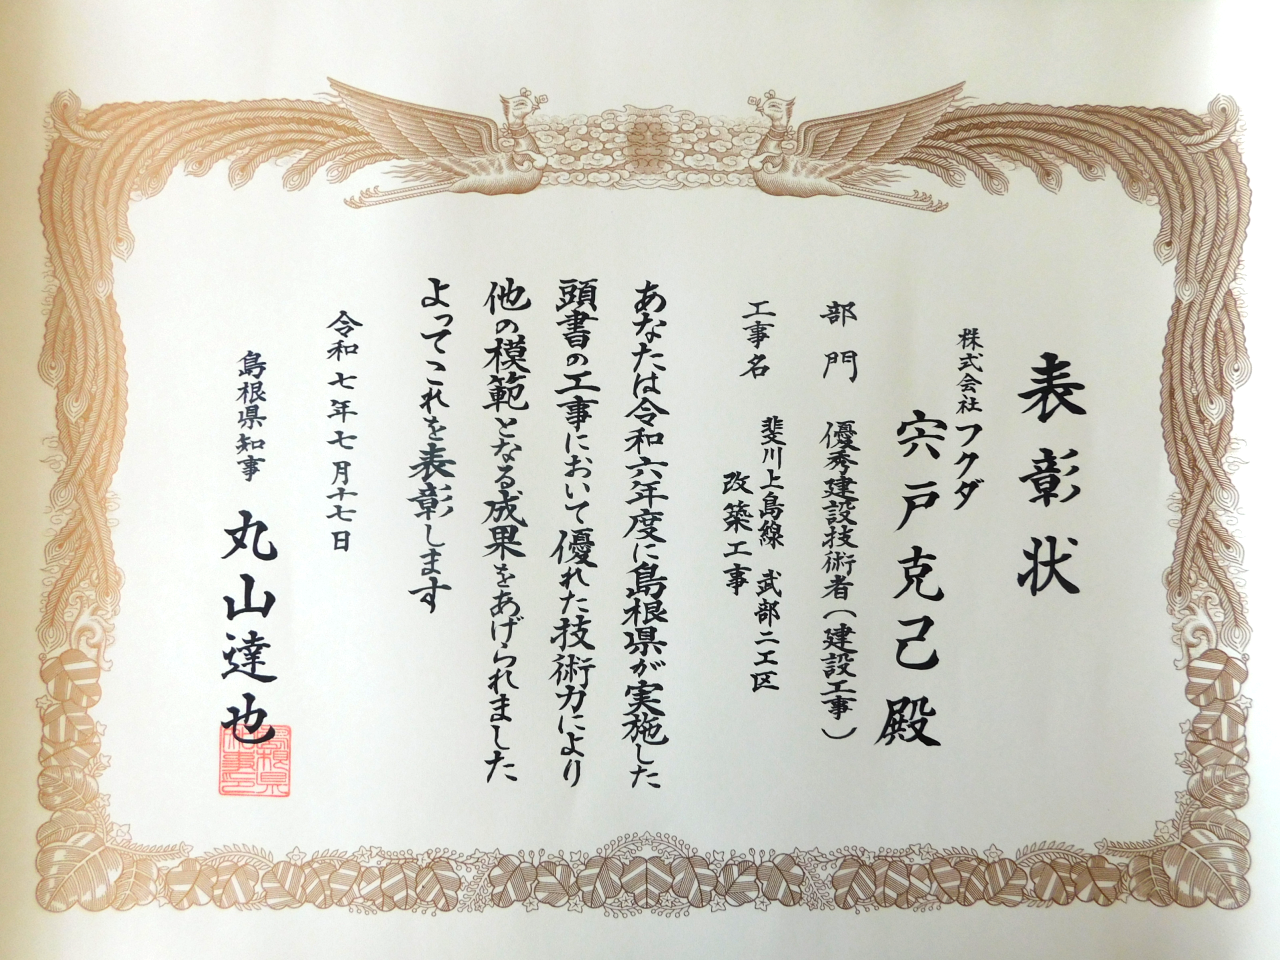 表彰状
株式会社フクダ
宍戸克己殿
部門 優秀建設技術者(建設工事)
工事名 斐川上島線 武部二工区
改築工事
あなたは令和六年度に島根県が実施した
頭書の工事において優れた技術力により
他の模範となる成果をあげられました
よってこれを表彰します
令和七年七月十七日
島根県知事 丸山達也
島根県
知事印